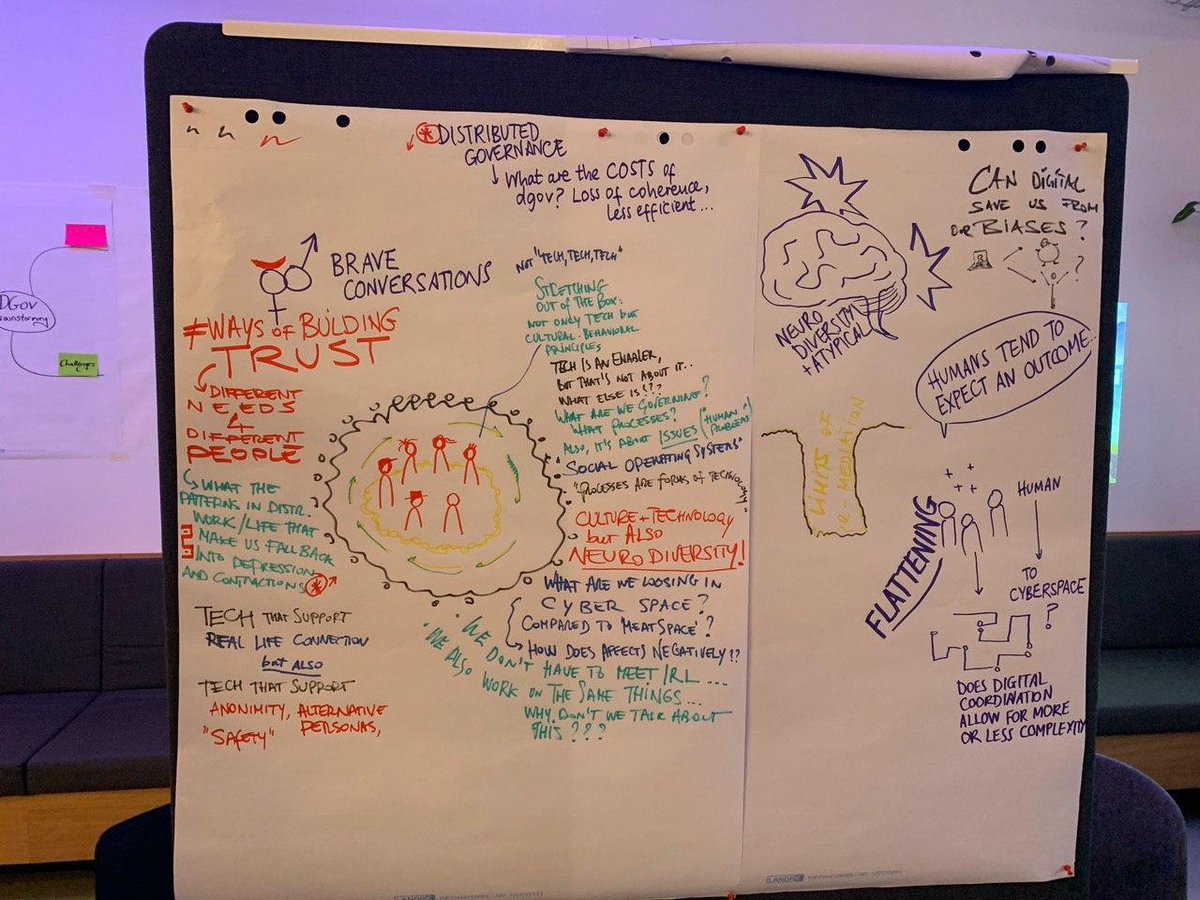 DGov
Challenges
DISTRIBUTED
GOVERNANCE
What are the COSTS of
dgov? Loss of coherence,
less efficient...
BRAVE
CONVERSATIONS
≠WAYS OF BUILDING
TRUST
DIFFERENT
NEEDS
4
DIFFERENT
PEOPLE
WHAT THE
PATTERNS IN DISTR.
WORK/LIFE THAT
MAKE US FALLBACK
INTO DEPRESSION
AND CONTRACTIONS
TECH THAT SUPPORT
REAL LIFE CONNECTION
but ALSO
TECH THAT SUPPORT
ANONIMITY, ALTERNATIVE
PERSONAS,
"SAFETY"
NOT "TECH, TECH, TECH"
STRETCHING
OUT OF THE BOX:
NOT ONLY TECH but
CULTURAL-BEHAVIORAL
PRINCIPLES
TECH IS AN ENABLER,
BUT THAT'S NOT ABOUT IT..
WHAT ELSE IS???
WHAT ARE WE GOVERNING?
WHAT PROCESSES?
ALSO, IT'S ABOUT ISSUES ("HUMAN"
PROBLEMS)
"SOCIAL OPERATING SYSTEMS"
"PROCESSES ARE FORMS OF TECHNOLOGY"
CULTURE + TECHNOLOGY
but ALSO
NEURODIVERSITY!
WHAT ARE WE LOOSING IN
CYBER SPACE?
COMPARED TO 'MEATSPACE'?
HOW DOES AFFECTS NEGATIVELY!?
"WE DON'T HAVE TO MEET IRL....
"WE ALSO WORK ON THE SAME THINGS...
WHY DON'T WE TALK ABOUT
THIS???
NEURO
DIVERSITY
+ATYPICAL
LIMITS OF
e-MEDIATION
CAN DIGITAL
SAVE US FROM
our BIASES?
?
HUMANS TEND TO
EXPECT AN OUTCOME..
FLATTENING
HUMAN
TO
CYBERSPACE
?
DOES DIGITAL
COORDINATION
ALLOW FOR MORE
OR LESS COMPLEXITY